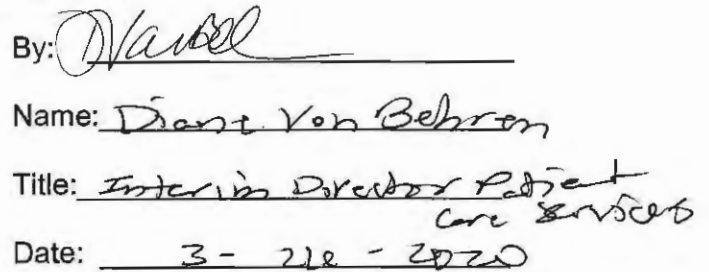 By:
Name: Diane Von Behren
Title: Interim Director Patient
Care Services
Date: 3-26-2020